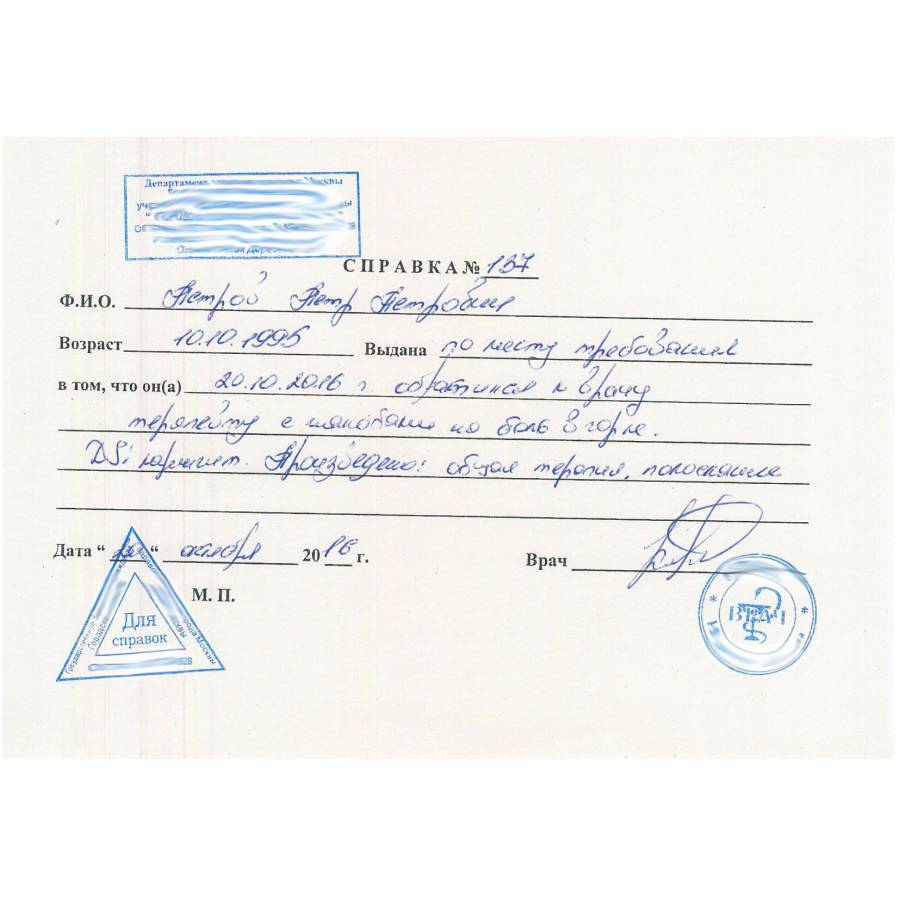 Департамен Москвы
СПРАВКА № 137
Ф.И.О. Петров Петр Петрович
Возраст 10.10.1995 Выдана по месту требования
в том, что он(а) 20.10.2016 г. обратился к врачу
терапевту с жалобами на боль в горле.
DS: ларингит. Произведено: общая терапия, полоскание
Дата “ 20 “ октября 20 16 г. Врач
М. П.
Для
справок
города Москвы
ВРАЧ